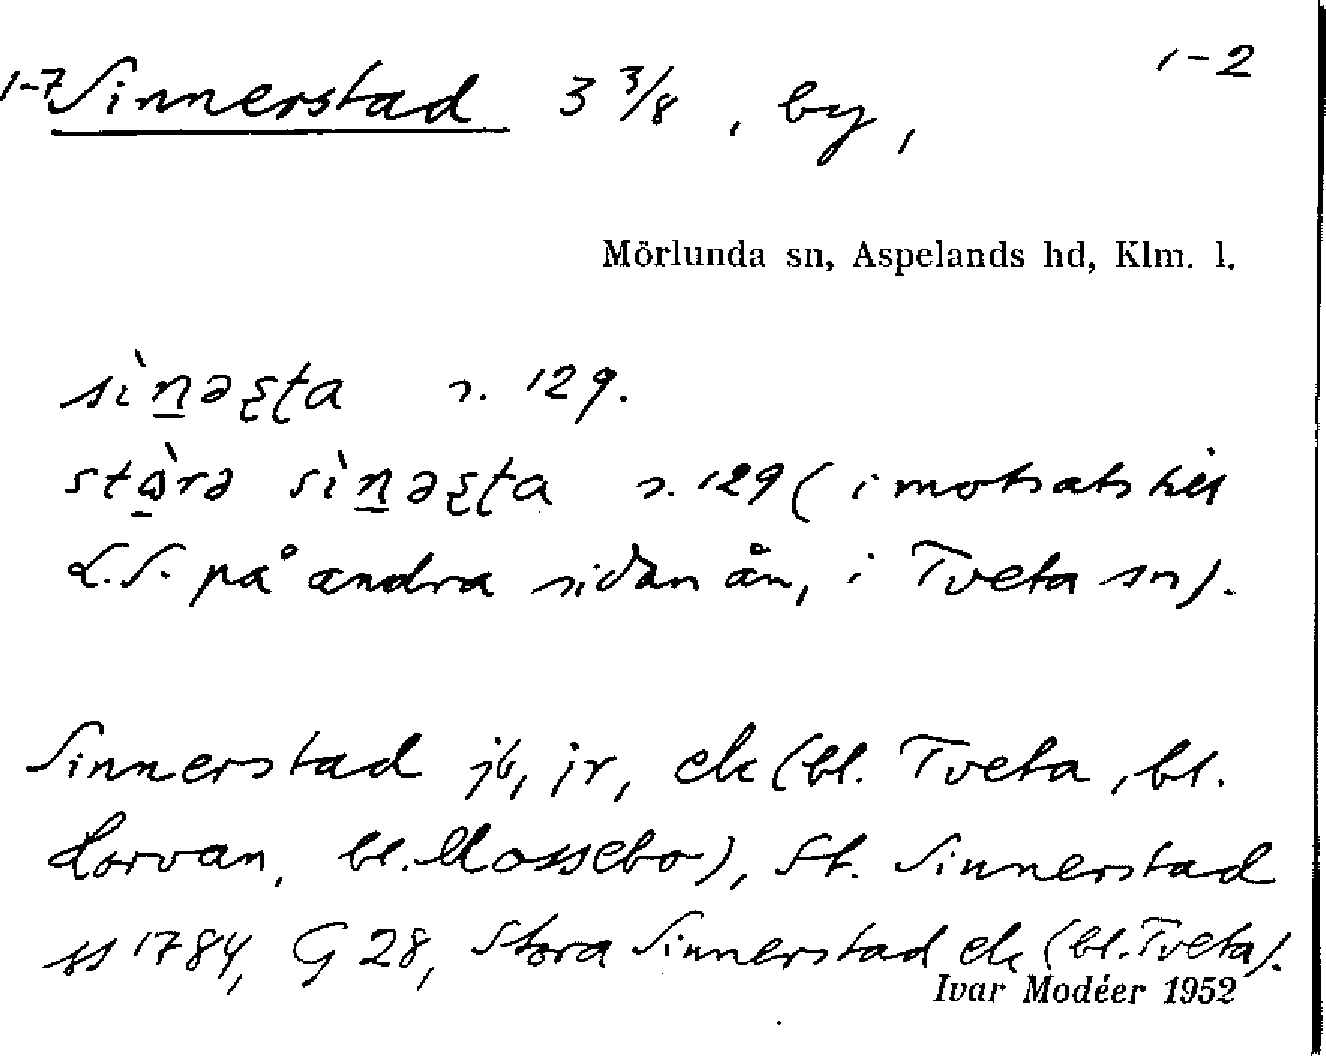 1-7 Sinnerstad 3 3/8, by,
1-2
Mörlunda sn, Aspelands hd, Klm. l.
sìn̲əʂʈa s. 129.
stɑ̲̀rə sìn̲əʂʈa s. 129 (i motsats till
L.S. på andra sidan ån, i Tveta sn).
Sinnerstad jb, jr, ek (bl. Tveta, bl.
Korvan, bl. Mossebo), St. Sinnerstad
ss 1784, G 28, Stora Sinnerstad ek (bl. Tveta).
Ivar Modéer 1952